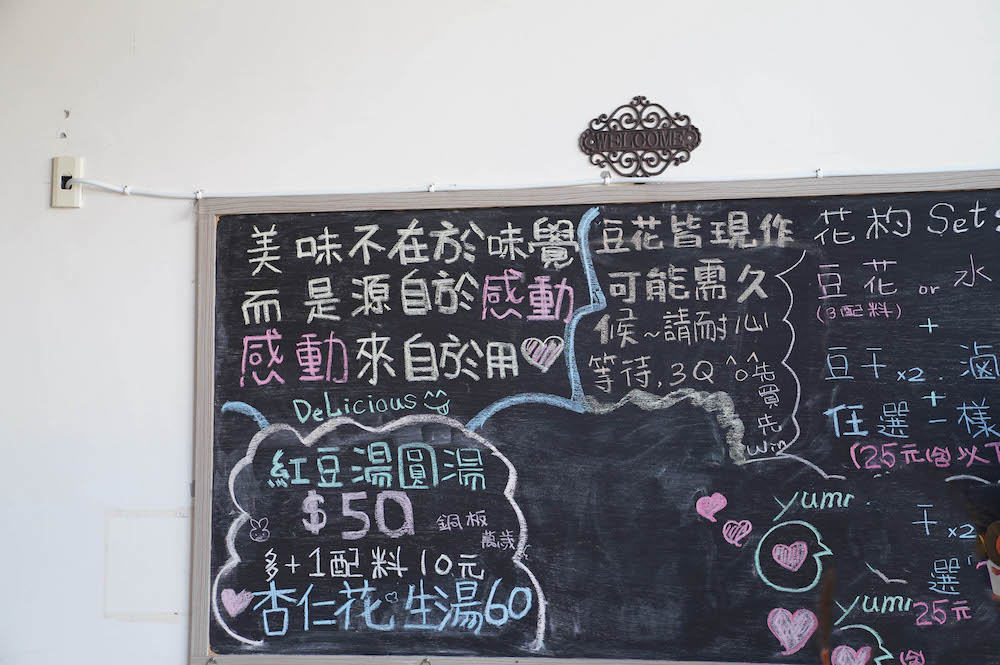 WELCOME
美味不在於味覺
而是源自於感動
感動來自於用♡
Delicious
豆花皆現作
可能需久
候~請耐心
等待,3Q ^o^
先買先
Win
紅豆湯圓湯
$50
銅板
萬歲
多+1配料10元
杏仁花生湯60
花杓 Set
豆花 or 水
(3配料)
+
豆干x2. 滷
+
任選一樣
(25元(含)以下
yumi
干x2
選
yumi
25元
(含)